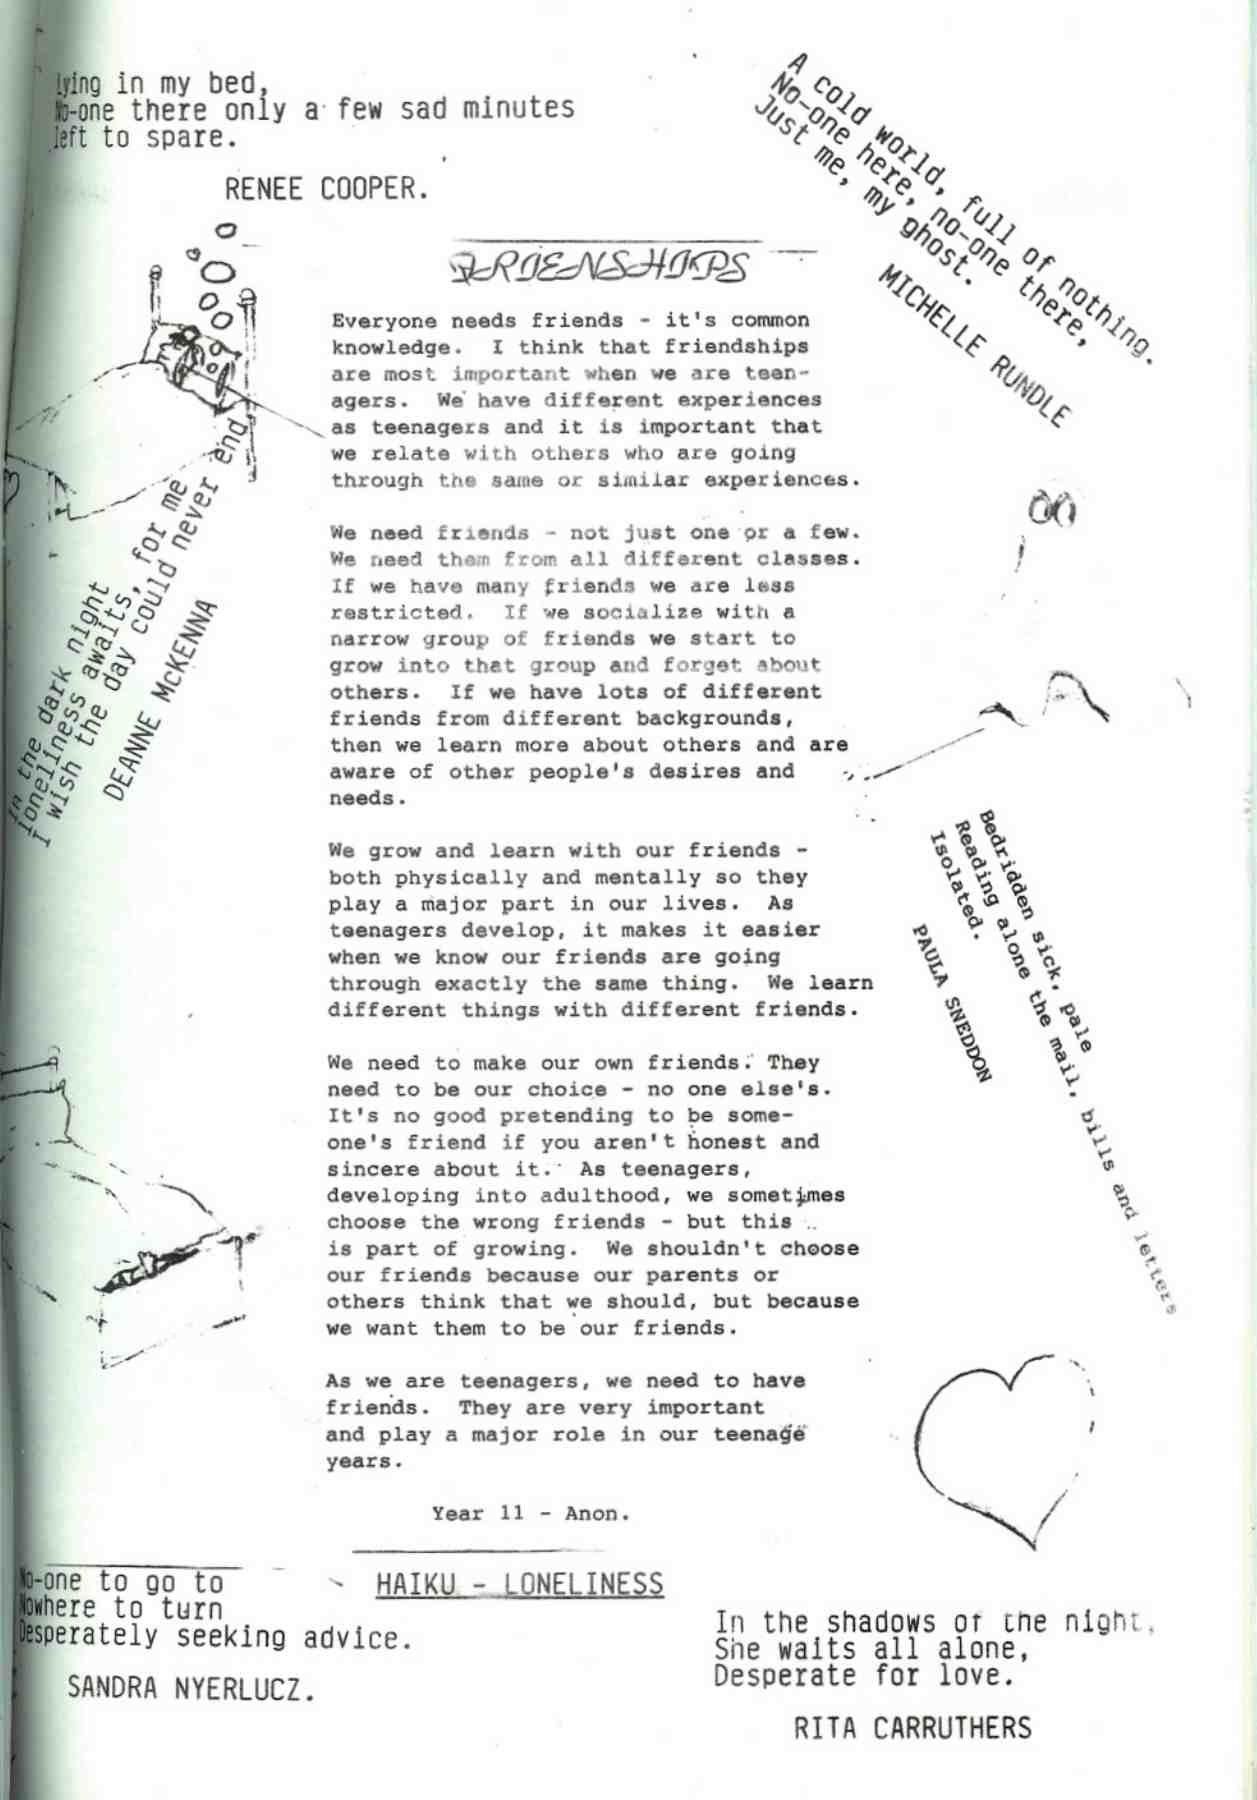 Lying in my bed,
No-one there only a few sad minutes
left to spare.
RENEE COOPER.
A cold world, full of nothing.
No-one here, no-one there,
Just me, my ghost.
MICHELLE RUNDLE
FRIENSHIPS
Everyone needs friends - it's common
knowledge. I think that friendships
are most important when we are teen-
agers. We have different experiences
as teenagers and it is important that
we relate with others who are going
through the same or similar experiences.
We need friends - not just one or a few.
We need them from all different classes.
If we have many friends we are less
restricted. If we socialize with a
narrow group of friends we start to
grow into that group and forget about
others. If we have lots of different
friends from different backgrounds,
then we learn more about others and are
aware of other people's desires and
needs.
We grow and learn with our friends -
both physically and mentally so they
play a major part in our lives. As
teenagers develop, it makes it easier
when we know our friends are going
through exactly the same thing. We learn
different things with different friends.
We need to make our own friends. They
need to be our choice - no one else's.
It's no good pretending to be some-
one's friend if you aren't honest and
sincere about it. As teenagers,
developing into adulthood, we sometimes
choose the wrong friends - but this
is part of growing. We shouldn't choose
our friends because our parents or
others think that we should, but because
we want them to be our friends.
As we are teenagers, we need to have
friends. They are very important
and play a major role in our teenage
years.
Year 11 - Anon.
In the dark night
loneliness awaits, for me
I wish the day could never end
DEANNE McKENNA
Bedridden sick, pale
Reading alone the mail, bills and letters
Isolated.
PAULA SNEDDON
HAIKU - LONELINESS
No-one to go to
Nowhere to turn
Desperately seeking advice.
SANDRA NYERLUCZ.
In the shadows of the night,
She waits all alone,
Desperate for love.
RITA CARRUTHERS